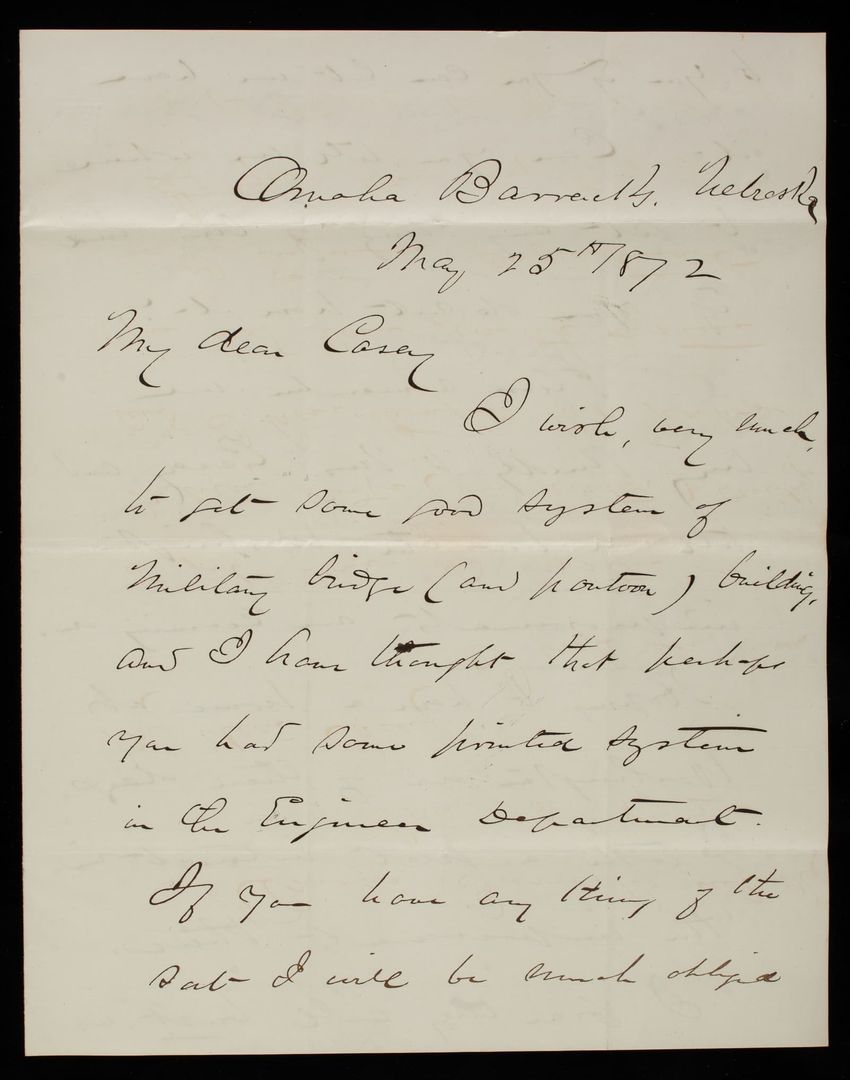 Omaha Barracks, Nebraska
May 25th 1872
My dear Casey
I wish, very much,
to get some good system of
Military bridge (and pontoon) building,
and I have thought that perhaps
you had some printed system
in the Engineer Department.
If you have any thing of the
sort I will be much obliged